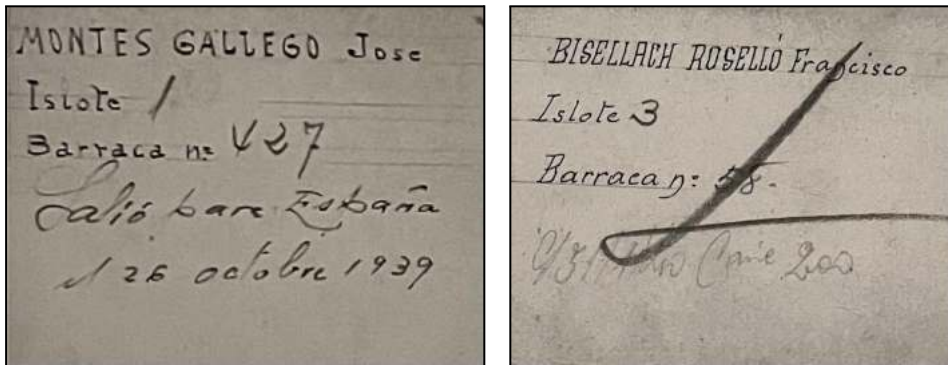 MONTES GALLEGO Jose
Islote 1
Barraca nº 427
Salió para España
el 26 octobre 1939
BISELLACH ROSELLÓ Francisco
Islote 3
Barraca nº: 58.
200